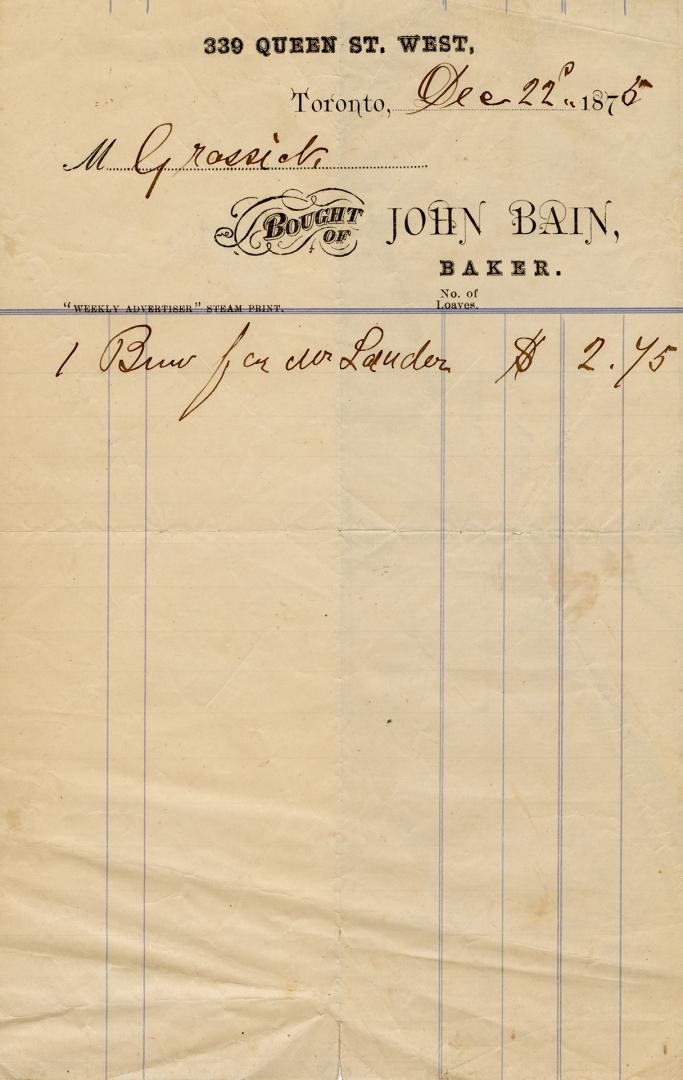 339 QUEEN ST. WEST,
Toronto, Dec 22d 1875
M Grassick
BOUGHT OF JOHN BAIN,
BAKER.
No. of Loaves.
"WEEKLY ADVERTISER" STEAM PRINT.
1 Bun for Mr Lauder $ 2.75